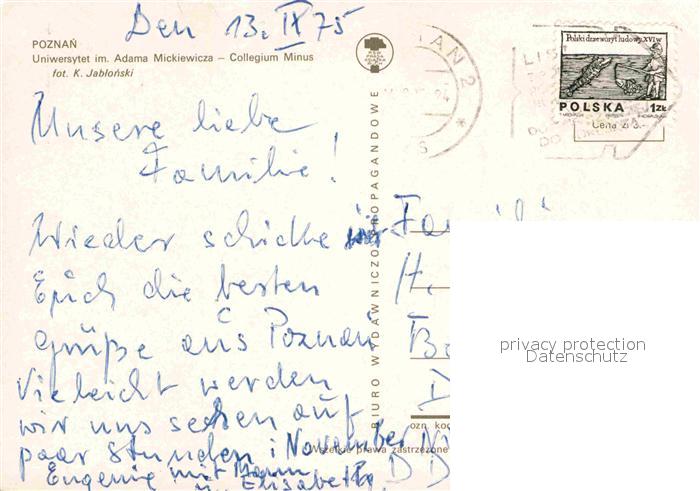 Den 13. IX 75
POZNAŃ
Uniwersytet im. Adama Mickiewicza – Collegium Minus
fot. K. Jabłoński
Unsere liebe
Familie!
Wieder schicke
Euch die besten
Grüße aus Poznań
Vieleicht werden
wir uns sechen auf
paar Stunden i November
Eugenie mit Mann
u. Elisabeth
BIURO WYDAWNICZO-PROPAGANDOWE
Polski drzeworyt ludowy XVI w
POLSKA 1ZŁ
Cena zł 3.-
H.
privacy protection
Datenschutz
Wszelkie prawa zastrzeżone